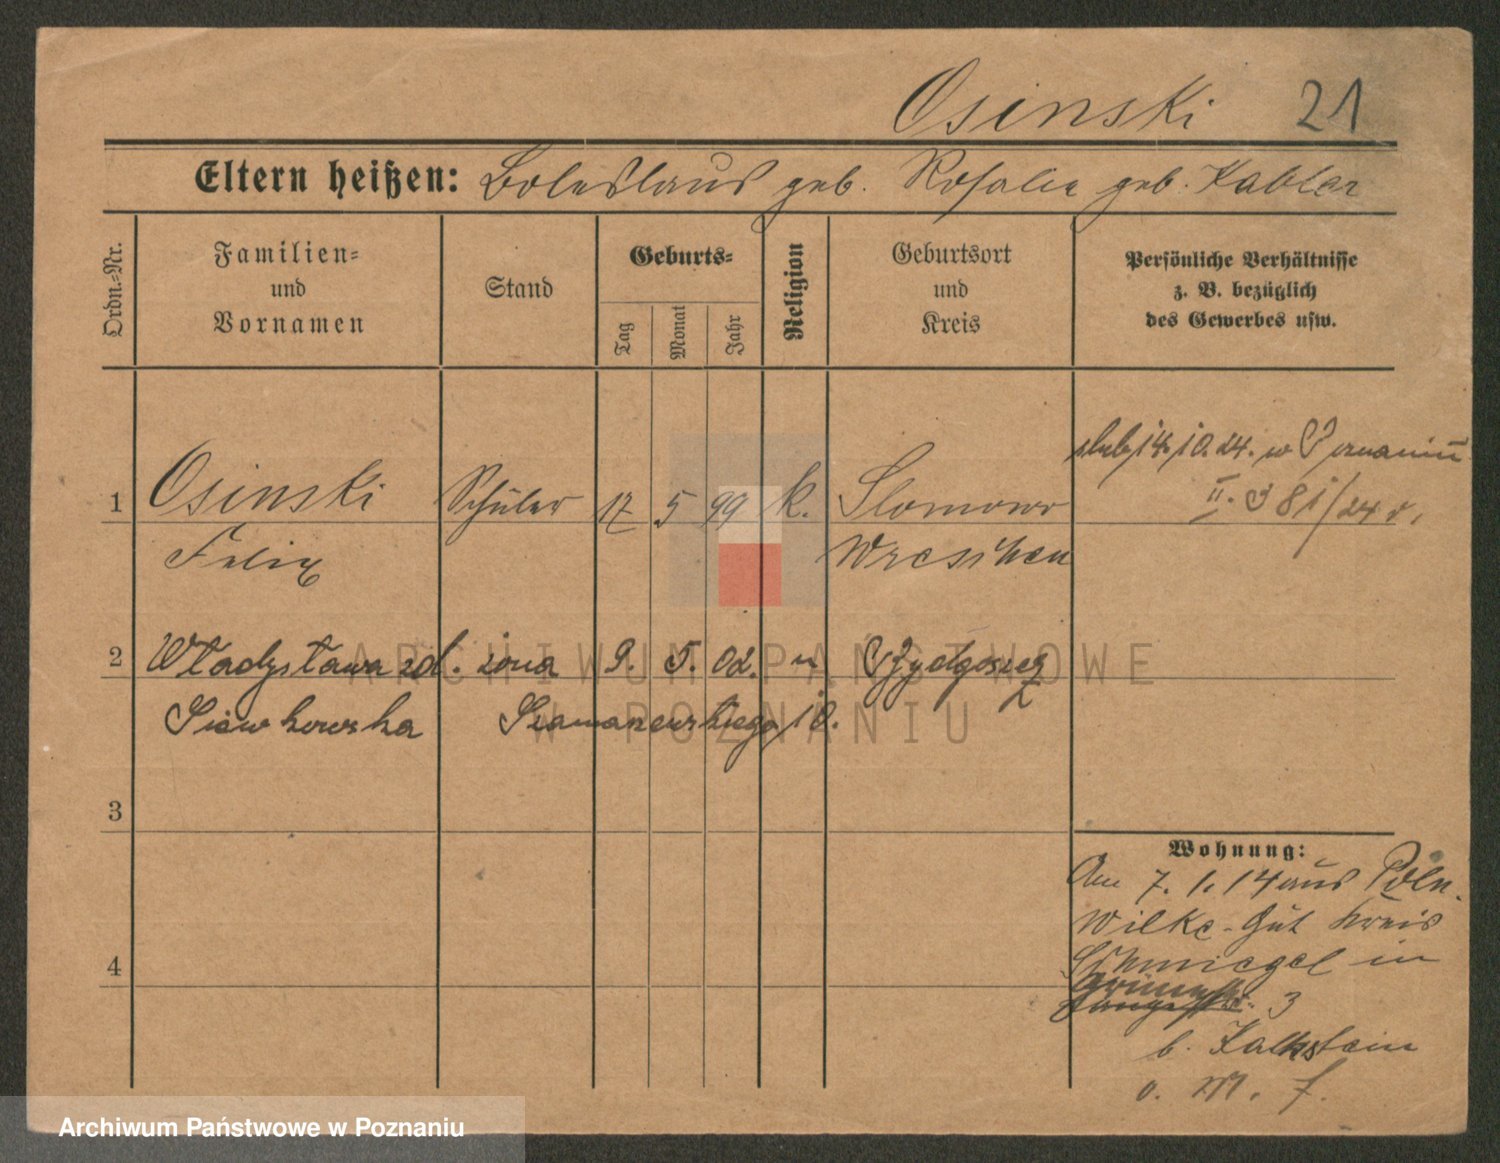 Osinski 21
Eltern heißen: Boleslaus geb. Rosalie geb. Kabler
Ordn.-Nr.
Familien-
und
Vornamen
Stand
Geburts-
Tag
Monat
Jahr
Religion
Geburtsort
und
Kreis
Persönliche Verhältnisse
z. B. bezüglich
des Gewerbes usw.
ślub 14.10.24. w Poznaniu
1 Osinski Schüler 17 5 99 k. Slomowo
II. 381/24 r.
Felix Wreschen
2 Władysława zd. żona 9. 5. 02. " Bydgoszcz
Siewkowska Szamarzewskiego 10.
3
Wohnung:
Am 7. 1. 14 aus Poln.
Wilke-Gut Kreis
4
Schmiegel in
3
b. Kalkstein
v. M. F.
ARCHIWUM PAŃSTWOWE
W POZNANIU
Archiwum Państwowe w Poznaniu